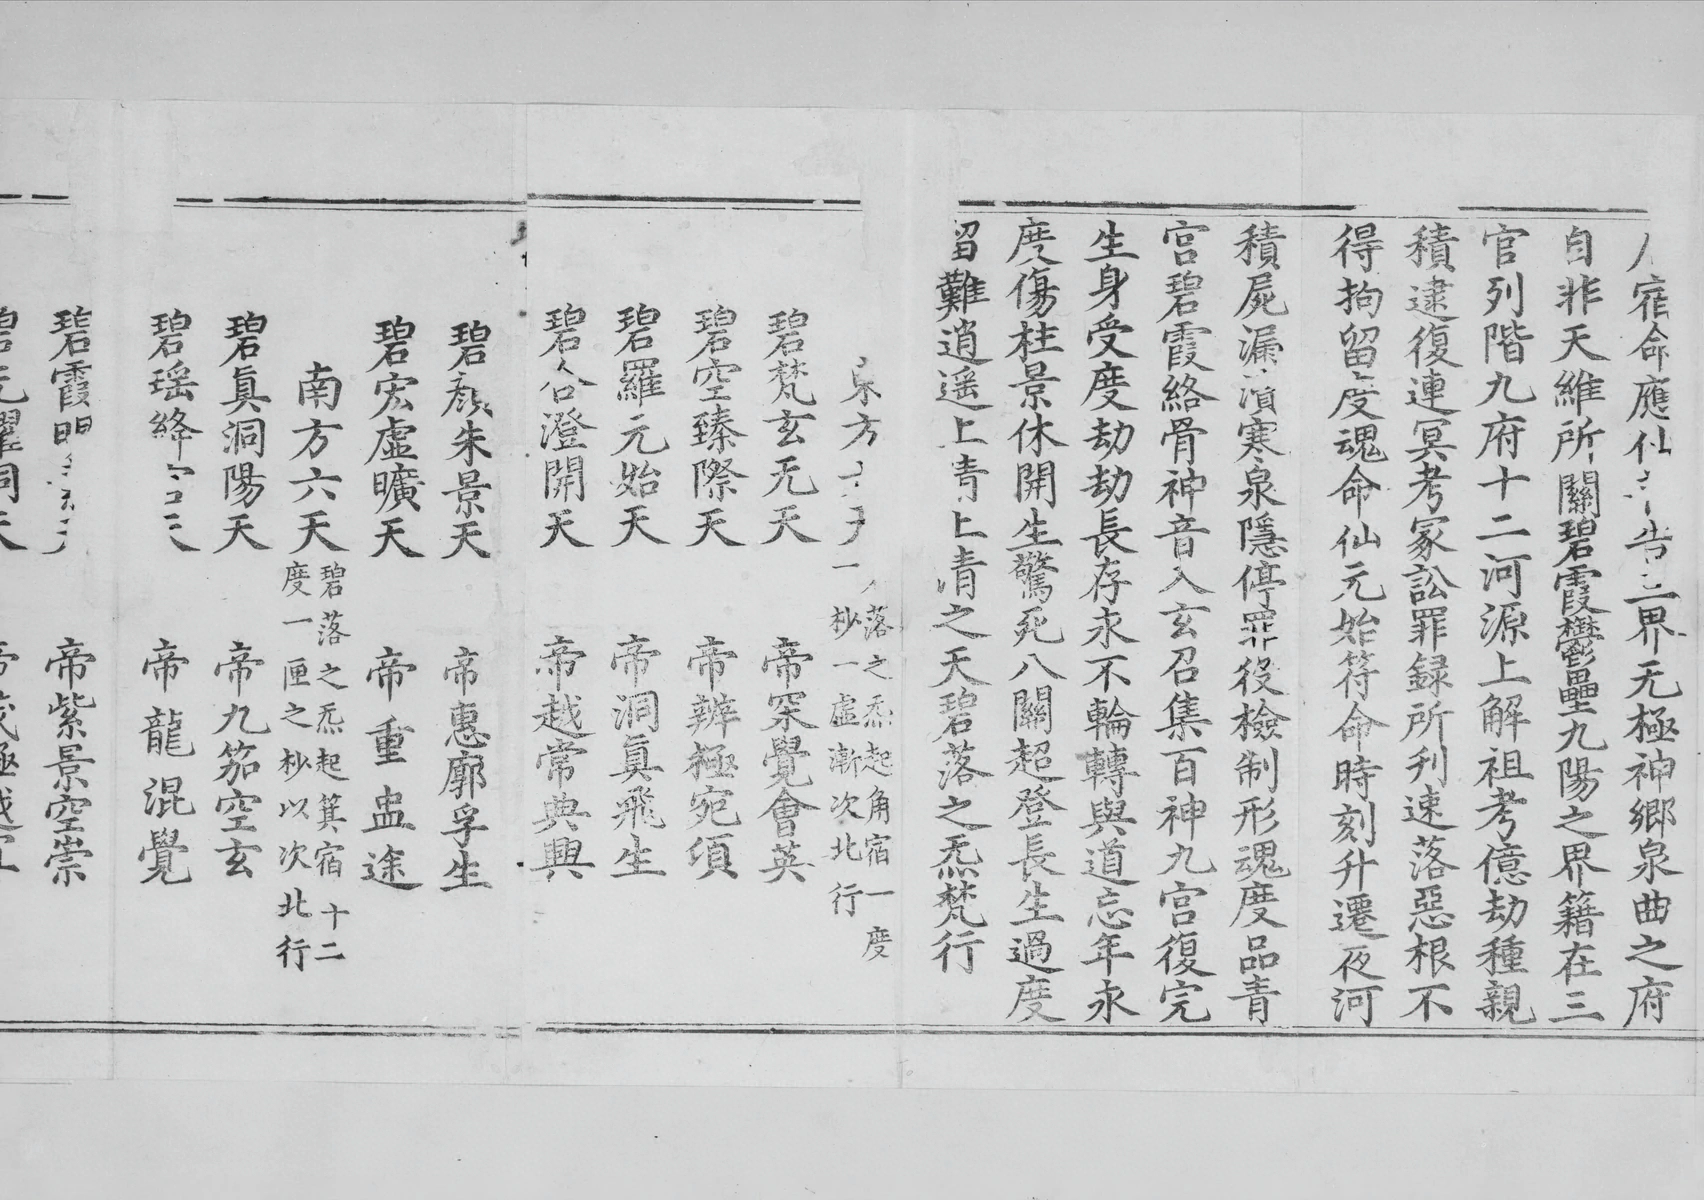 宿命應仙告三界无極神郷泉曲之府
自非天維所關碧霞鬱壘九陽之界籍在三
官列階九府十二河源上解祖考億劫種親
積逮復連冥考冢訟罪録所刋速落惡根不
得拘留度魂命仙元始符命時刻升遷夜河
積屍漏濱寒泉隱停罪役檢制形魂度品青
宮碧霞絡骨神音入玄召集百神九宮復完
生身受度劫劫長存永不輪轉與道忘年永
度傷柱景休開生驚死八關超登長生過度
留難逍遥上清上清之天碧落之炁梵行
東方天
落之炁起角宿一度
一杪一虛漸次北行
碧梵玄无天 帝罙覺會英
碧空臻際天 帝辨極宛須
碧羅元始天 帝洞眞飛生
碧合澄開天 帝越常典興
碧顏朱景天 帝惠廓孚生
碧宏虛曠天 帝重盅途
南方六天
碧落之炁起箕宿十二
度一匣之杪以次北行
碧眞洞陽天 帝九笳空玄
碧瑶絳天 帝龍混覺
碧霞明天 帝紫景空崇
碧元耀洞天